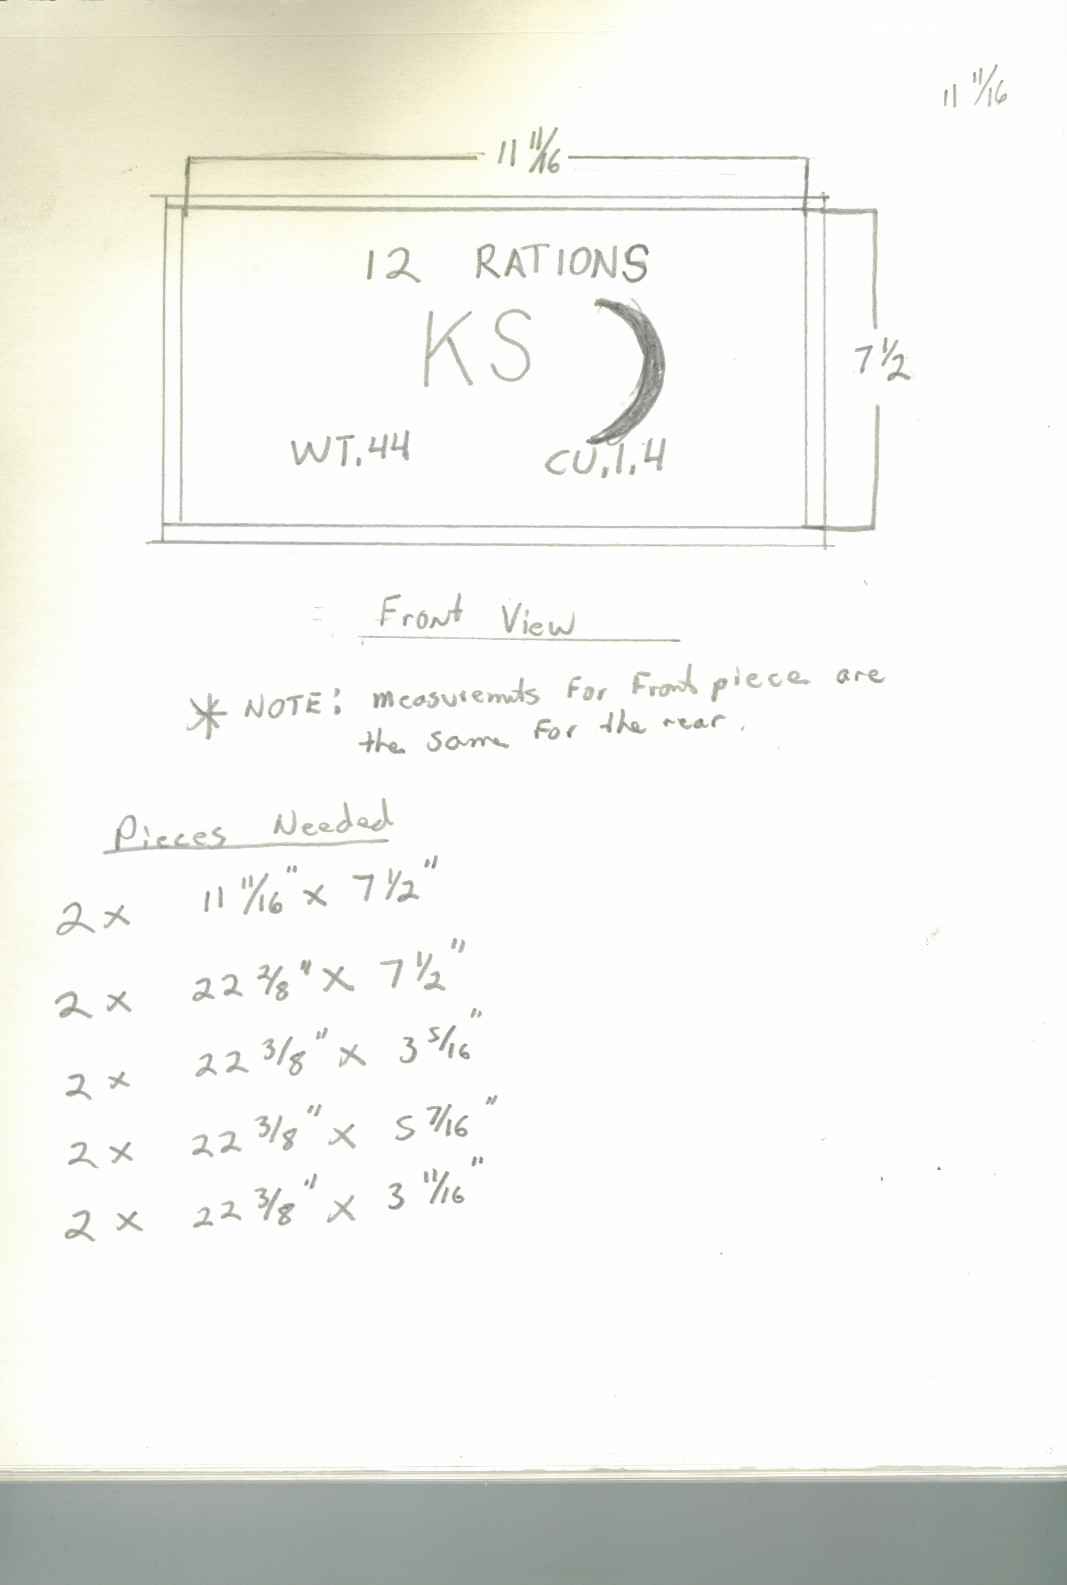 11 11/16
11 11/16
12 RATIONS
KS
7 1/2
WT.44
CU.1.4
Front View
* NOTE: measuremts for Front piece are
the same for the rear.
Pieces Needed
2 x 11 11/16" x 7 1/2"
2 x 22 2/8" x 7 1/2"
2 x 22 3/8" x 3 5/16"
2 x 22 3/8" x 5 7/16"
2 x 22 3/8" x 3 11/16"